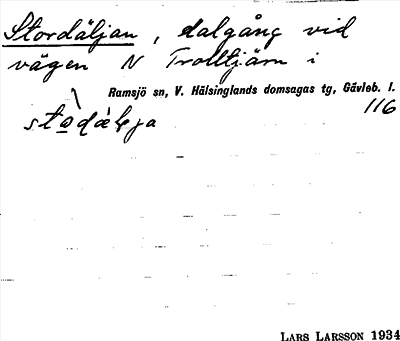 Stordäljan, dalgång vid
vägen N Trolltjärn i
Ramsjö sn, V. Hälsinglands domsagas tg, Gävleb. l.
116
LARS LARSSON 1934